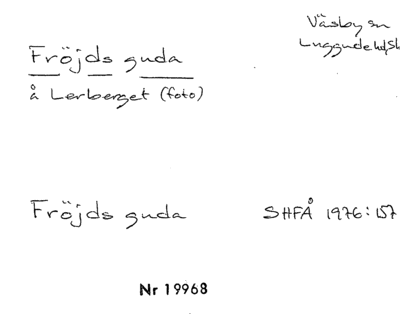 Väsby sn
Luggude hd, Sk
Fröjds guda
å Lerberget (foto)
Fröjds guda
SHFÅ 1976:157
Nr 19968